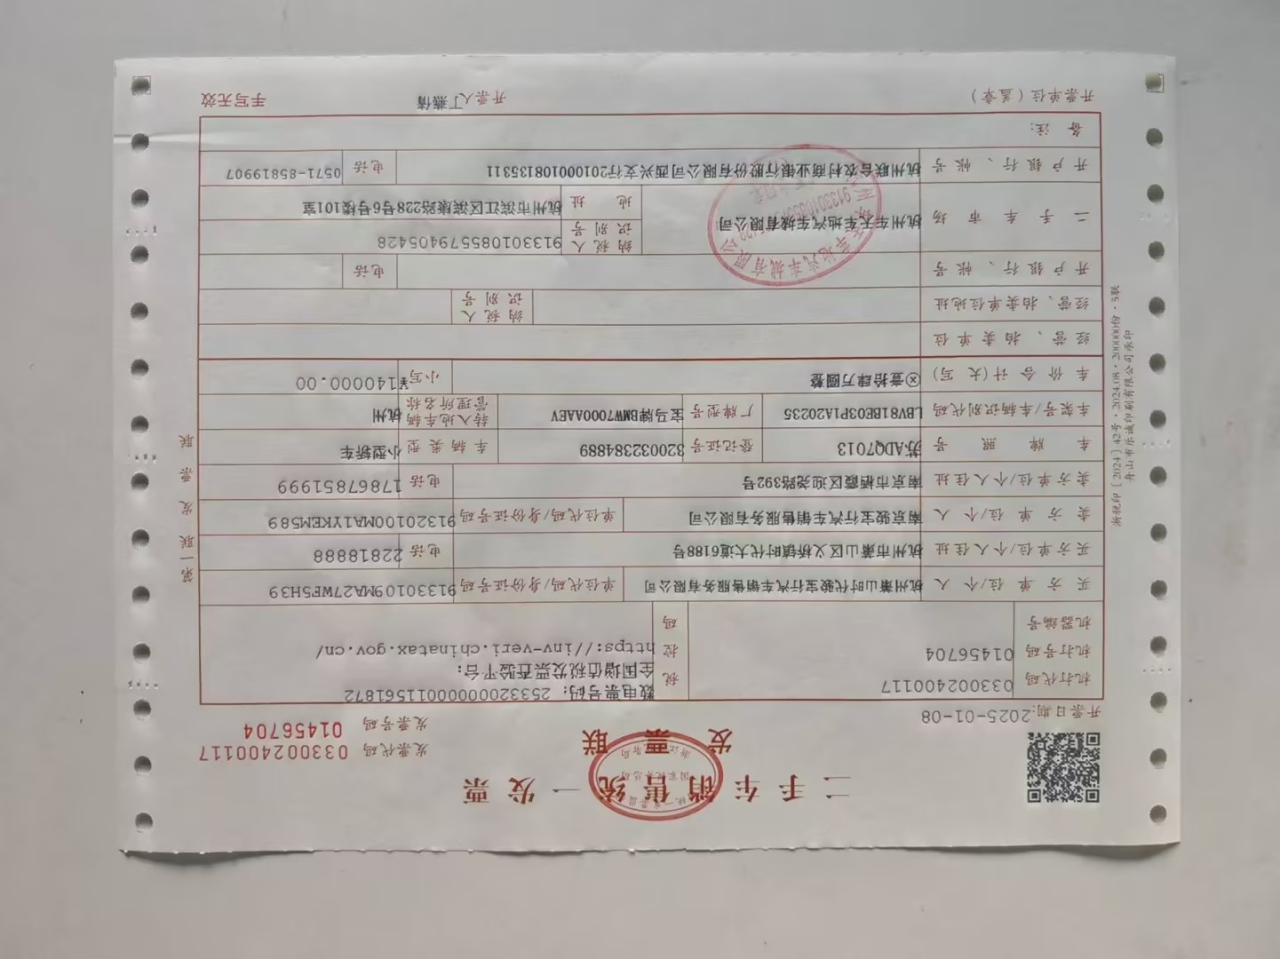 二手车销售统一发票
发票联
发票代码 033002400117
发票号码 01456704
开票日期: 2025-01-08
机打代码 033002400117
机打号码 01456704
机器编号
税控码
数电票号码: 25332000000011561872
全国增值税发票查验平台:
https://inv-veri.chinatax.gov.cn/
买方单位/个人 杭州萧山时代骏宝行汽车销售服务有限公司 单位代码/身份证号码 91330109MA27WF5H39
买方单位/个人住址 杭州市萧山区义桥镇时代大道6188号 电话 22818888
卖方单位/个人 南京骏宝行汽车销售服务有限公司 单位代码/身份证号码 91320100MA1YKEM589
卖方单位/个人住址 南京市栖霞区迎尧路392号 电话 17867851999
车牌照号 苏ADQ7013 登记证号 320032384889 车辆类型 小型轿车
车架号/车辆识别代码 LBV81BE03P1A20235 厂牌型号 宝马牌BMW7000AAEV 转入地车辆管理所名称 杭州
车价合计(大写) ⊗壹拾肆万圆整 小写 ¥140000.00
经营、拍卖单位
经营、拍卖单位地址 纳税人识别号
开户银行、帐号 电话
二手车市场 杭州车天车地汽车城有限公司 纳税人识别号 913301085579405428
地址 杭州市滨江区滨康路228号6号楼101室
开户银行、帐号 杭州联合农村商业银行股份有限公司西兴支行201000108135311 电话 0571-85819907
备注:
开票单位(盖章) 开票人 丁燕倩 手写无效
第一联 发票联
浙税印〔2024〕42号·2024.08·200000份·5联
舟山市乐诚印刷有限公司承印